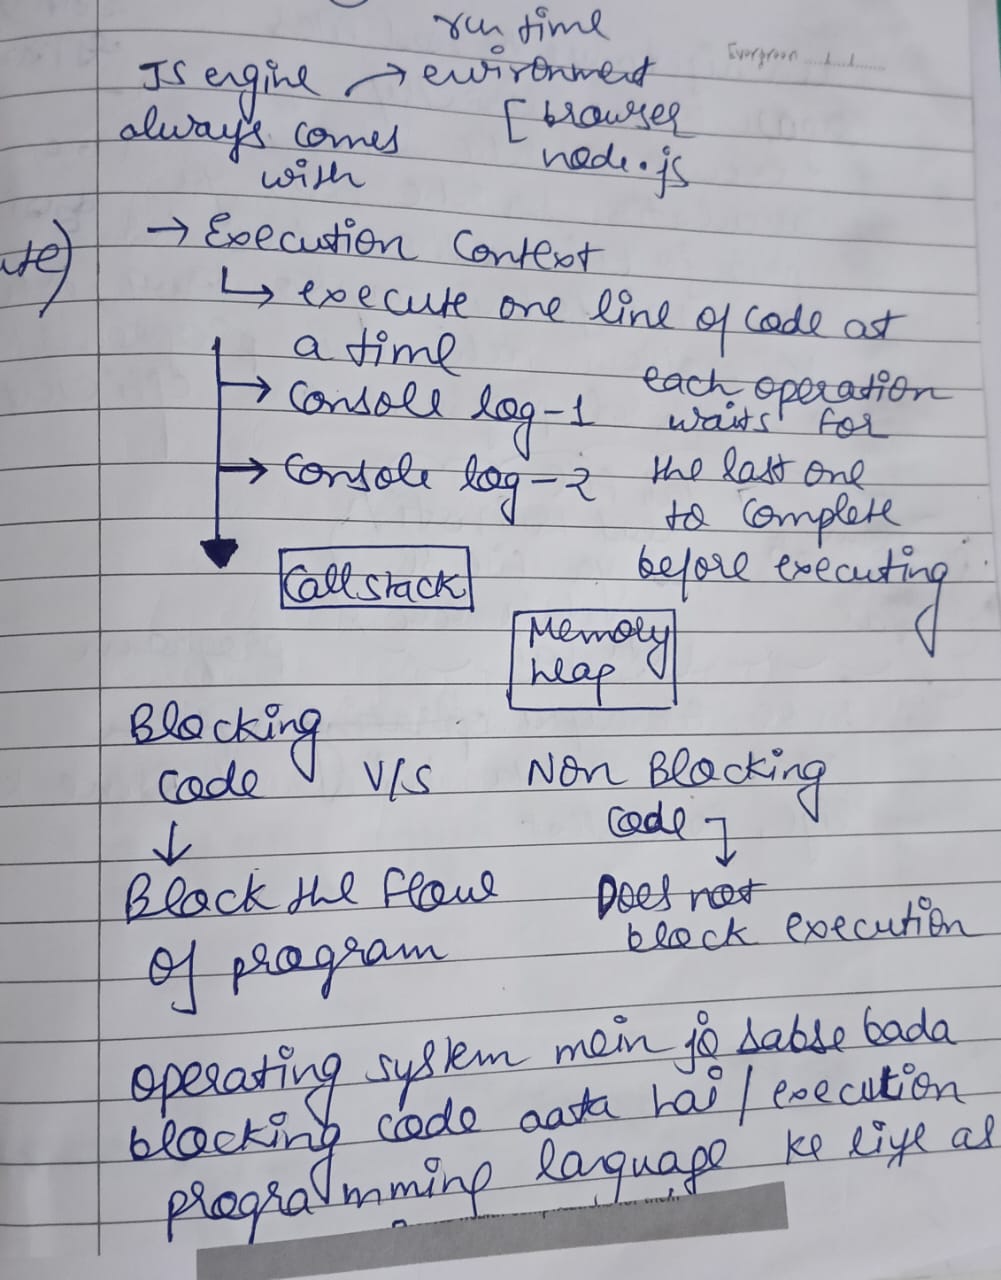 run time
Evergreen
JS engine → environment
always comes
with
[ browser
node.js
ute)
→ Execution Context
↳ execute one line of code at
a time
→ Console log-1
→ Console log-2
each operation
waits for
the last one
to complete
before executing
Call stack
Memory
heap
Blocking
code V/S Non Blocking
code
↓
Block the flow
of program
Does not
block execution
operating system mein jo sabse bada
blocking code aata hai / execution
programming language ke liye